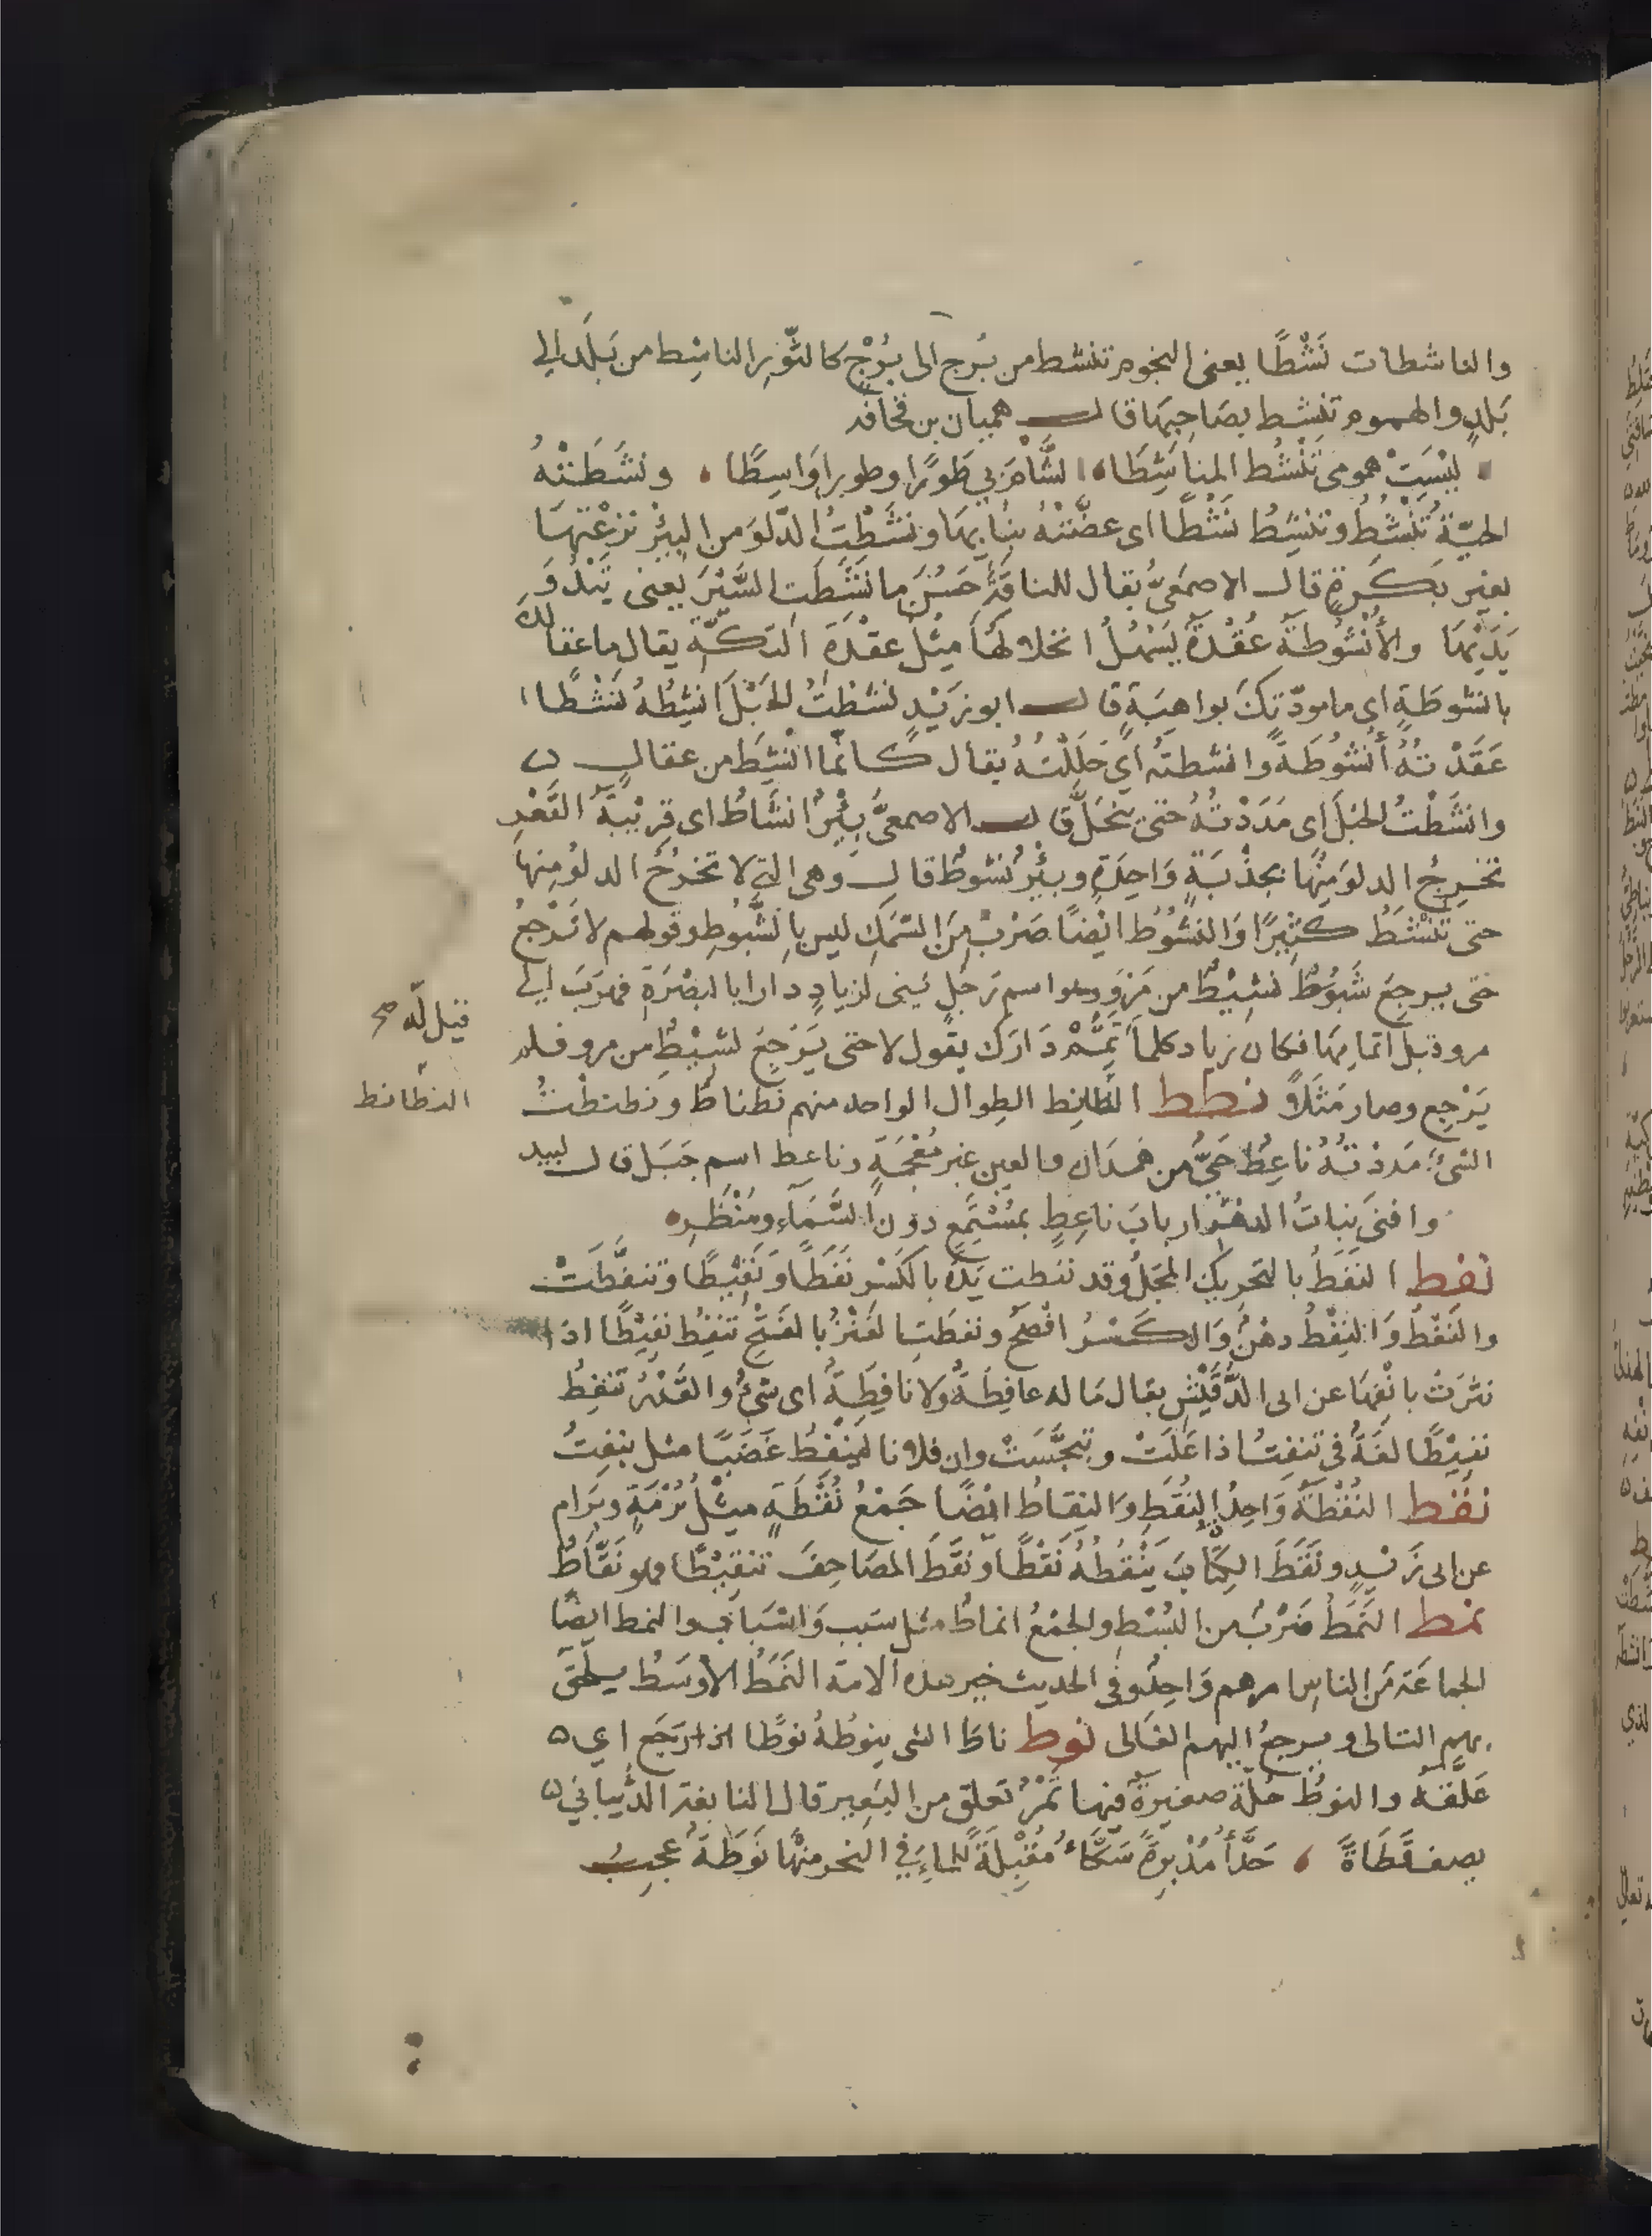 والناشطات نَشْطًا يعنى النجوم تنشط من بُرج الى بُرْج كالثَّوْرِ الناشِط من بَلَدٍ الى
بَلَدٍ والهموم تنشِط بصَاحِبِهَا قال هميان بن قحافة
لَيْسَتْ همومى تَنْشُط المناشِطَا الشَّامَ بى طَوْرًا وطورا وَاسِطًا ونشَطَتْهُ
الحَيّةُ تَنْشُطُ وتنشِطُ نَشْطًا اى عضّتْهُ بنابِهَا ونَشَطْتُ الدّلوَ من البِئْرِ نزعْتهَا
بغيرِ بَكَرةٍ قال الاصمَعىُّ يقال للناقَةِ حَسُنَ ما نَشَطَت السَّيْرَ يعنى سَدْوَ
يَدَيْهَا والأُنْشُوطَةُ عُقْدَةٌ يَسْهُلُ انحلالهَا مِثْل عقْدَةِ التِكّةِ يقال ما عقالكَ
بانشُوطَةٍ اى ما مودّتكَ بواهِيَةٍ قال ابو زَيْدٍ نشَطْتُ الحَبْلَ انشِطُهُ نَشْطًا
عَقَدْتُهُ أُنْشُوطَةً وانشطتهُ اى حَلَلْتُهُ يقال كانما انْشِطَ من عقالٍ
وانشَطْتُ الحَبْلَ اى مَدَدْتُهُ حتى ينحَلَّ قال الاصمعىُّ بِئْرٌ انشَاطٌ اى قرِيْبَةُ القَعْرِ
تخرِجُ الدلوَ مِنْهَا بجَذْبَةٍ وَاحِدَةٍ وبِئْرٌ نَشُوطٌ قال وهى التى لا تخرُجُ الدلوُ مِنهَا
حتى تَنْشَطَ كثِيْرًا وَالنشُوطُ ايْضًا ضَرْبٌ مِنَ السَّمَكِ ليس بالشَّبُّوطِ وقولهم لا تَرْجعُ
حتى يرجِعَ شَبُوطٌ نشيْطٌ من مَرْوَ وهو اسم رَجُلٍ بَنى لزيادٍ دارا بالبصْرَةِ فهرَبَ الى
مرو قبل اتمامِهَا فكان زياد كلما تَمِّمْ دَارَك يقول لا حتى يَرْجِعَ نَشِيْطٌ من مرو فلم
قيل له صح
يَرْجِع وصار مَثَلًا نطط النطانِط الطِوالُ الواحد منهم نَطْناطٌ ونطنطْتُ
النطانط
الشئَ مَددْتُهُ ناعِطٌ حَىٌّ من همَدان والعين غير مُعْجَمَةٍ وناعِط اسم جَبَل قال لبيد
وافنى بناتُ الدهْرِ اربابَ ناعِطٍ بمُسْتَمَعٍ دون السَّمَاءِ ومَنْظَرِ
نفط النَفَطُ بالتحريكِ المَجَلُ وقد نفطت يَدُهُ بالكَسْرِ نَفَطًا وَنَفِيْطًا وتنفَّطَتْ
والنَفْطُ وَالنِفْطُ دهْنٌ وَالكَسْرُ افْصَحُ ونفطَتِ العَنْزُ بالفَتْحِ تَنْفِطُ نَفِيْطًا اذا
نثرَتْ بانْفِهَا عن ابى الدُّقَيْشِ يقال مَا له عافِطَةٌ ولا نافِطَةٌ اى شئٌ والقِدْرُ تنفِطُ
نفِيْطًا لغَةٌ فى تنفِتُ اذا غَلَتْ وتبجَّسَتْ وان فلانا لَيَنْفِطُ غَضَبًا مثل ينفِتُ
نقط النُقْطَةُ وَاحِدُ النُقَطِ وَالنِقَاطُ ايْضًا جَمْعُ نُقْطَةٍ مِثْل بُرْمَةٍ وبِرَام
عن ابى زَيْدٍ ونَقَطَ الكِتَابَ يَنْقُطُهُ نَقْطًا ونقَّطَ المصَاحِفَ تنقِيْطًا وهو نَقَّاطٌ
نمط النَمَطُ ضَرْبٌ من البُسْطِ والجمْعُ انماطٌ مثل سَبب وَاسْبَابٍ والنمط ايضًا
الجماعَة مَن الناسِ امرهم وَاحِدٌ وفى الحديث خير هذه الامة النَمَطُ الأوسَطُ يلحَق
بهم التالى ويرجعُ اليهم الغالى نوط ناطَ الشئ ينوطُهُ نوْطًا اى
عَلَّقَهُ والنوطُ جُلّة صغيرةٌ فيها تَمْرٌ تعلق من البَعِير قال النابغة الذُّبيانىّ
يصف قَطَاةً حَذَّاءُ مُدْبِرَةً سَكَّاءُ مُقْبِلَةً للماءِ فى النحر منهَا نَوْطَةٌ عجبُ